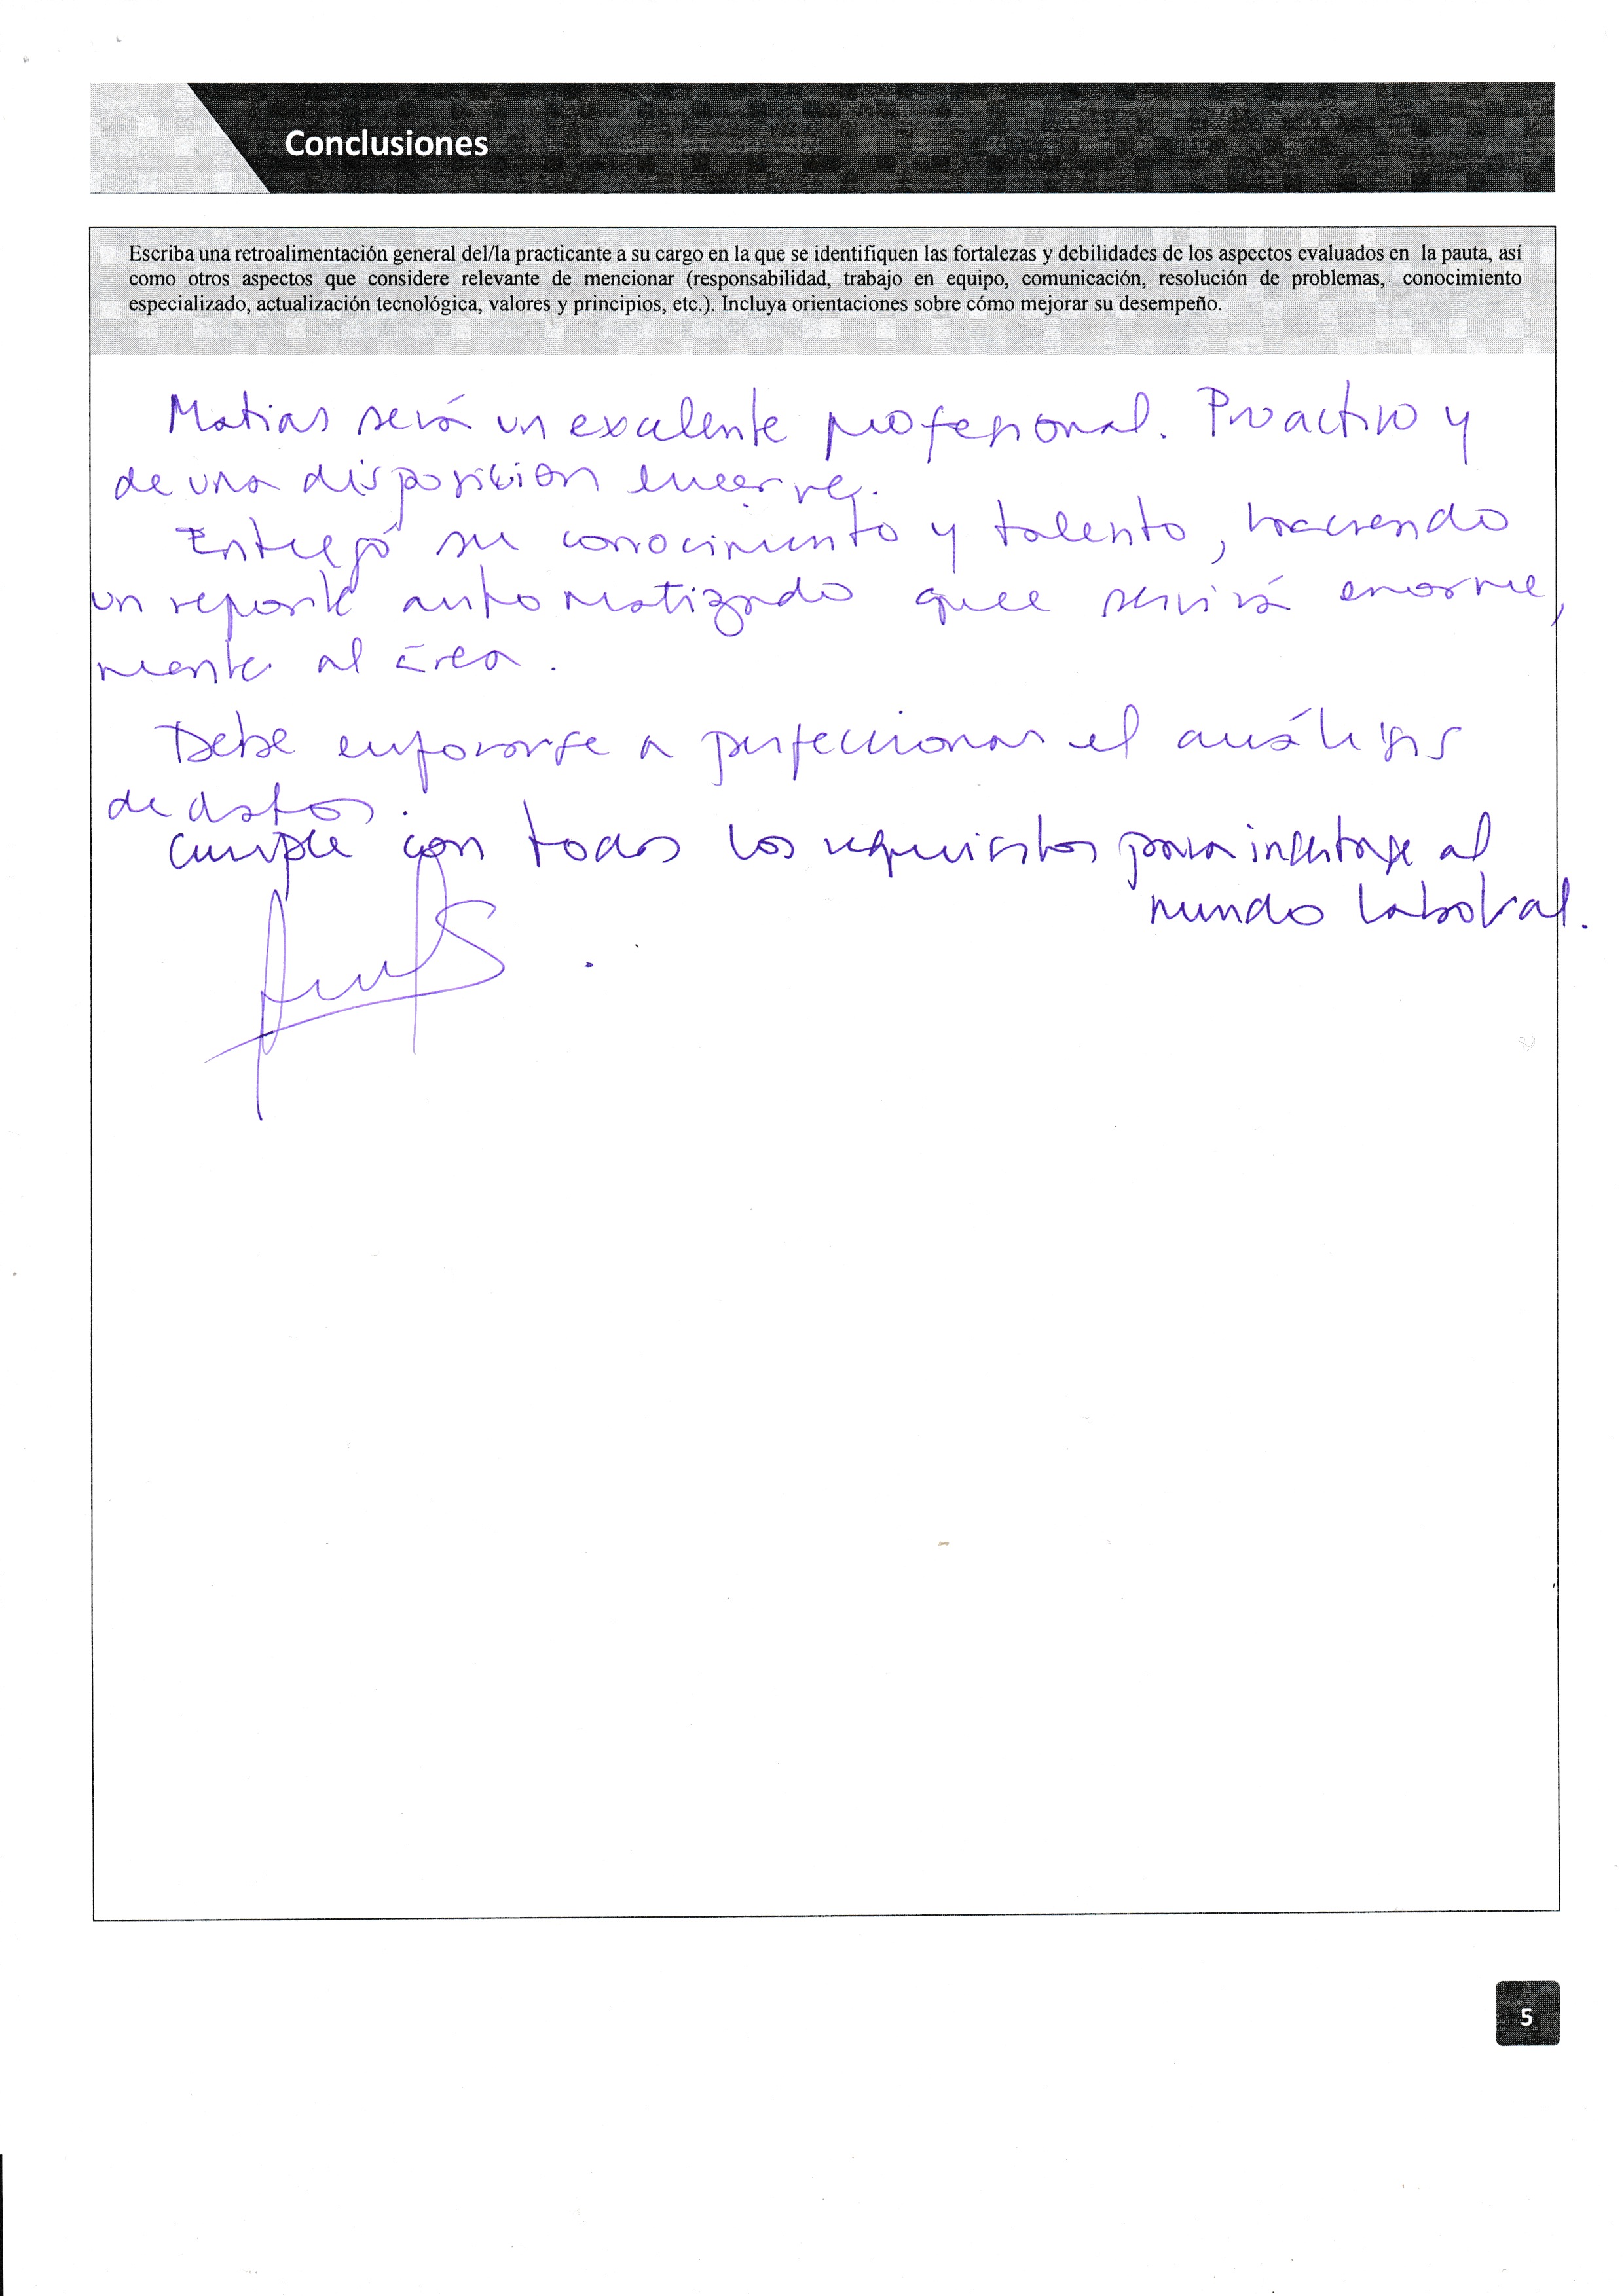 Conclusiones
Escriba una retroalimentación general del/la practicante a su cargo en la que se identifiquen las fortalezas y debilidades de los aspectos evaluados en la pauta, así
como otros aspectos que considere relevante de mencionar (responsabilidad, trabajo en equipo, comunicación, resolución de problemas, conocimiento
especializado, actualización tecnológica, valores y principios, etc.). Incluya orientaciones sobre cómo mejorar su desempeño.
Matias será un excelente profesional. Proactivo y
de una disposicion enorme.
Entregó su conocimiento y talento, haciendo
un reporte automatizado que servirá enorme,
mente al área.
Debe enfocarse a perfeccionar el análisis
de datos.
Cumple con todos los requisitos para insertarse al
mundo laboral.
5